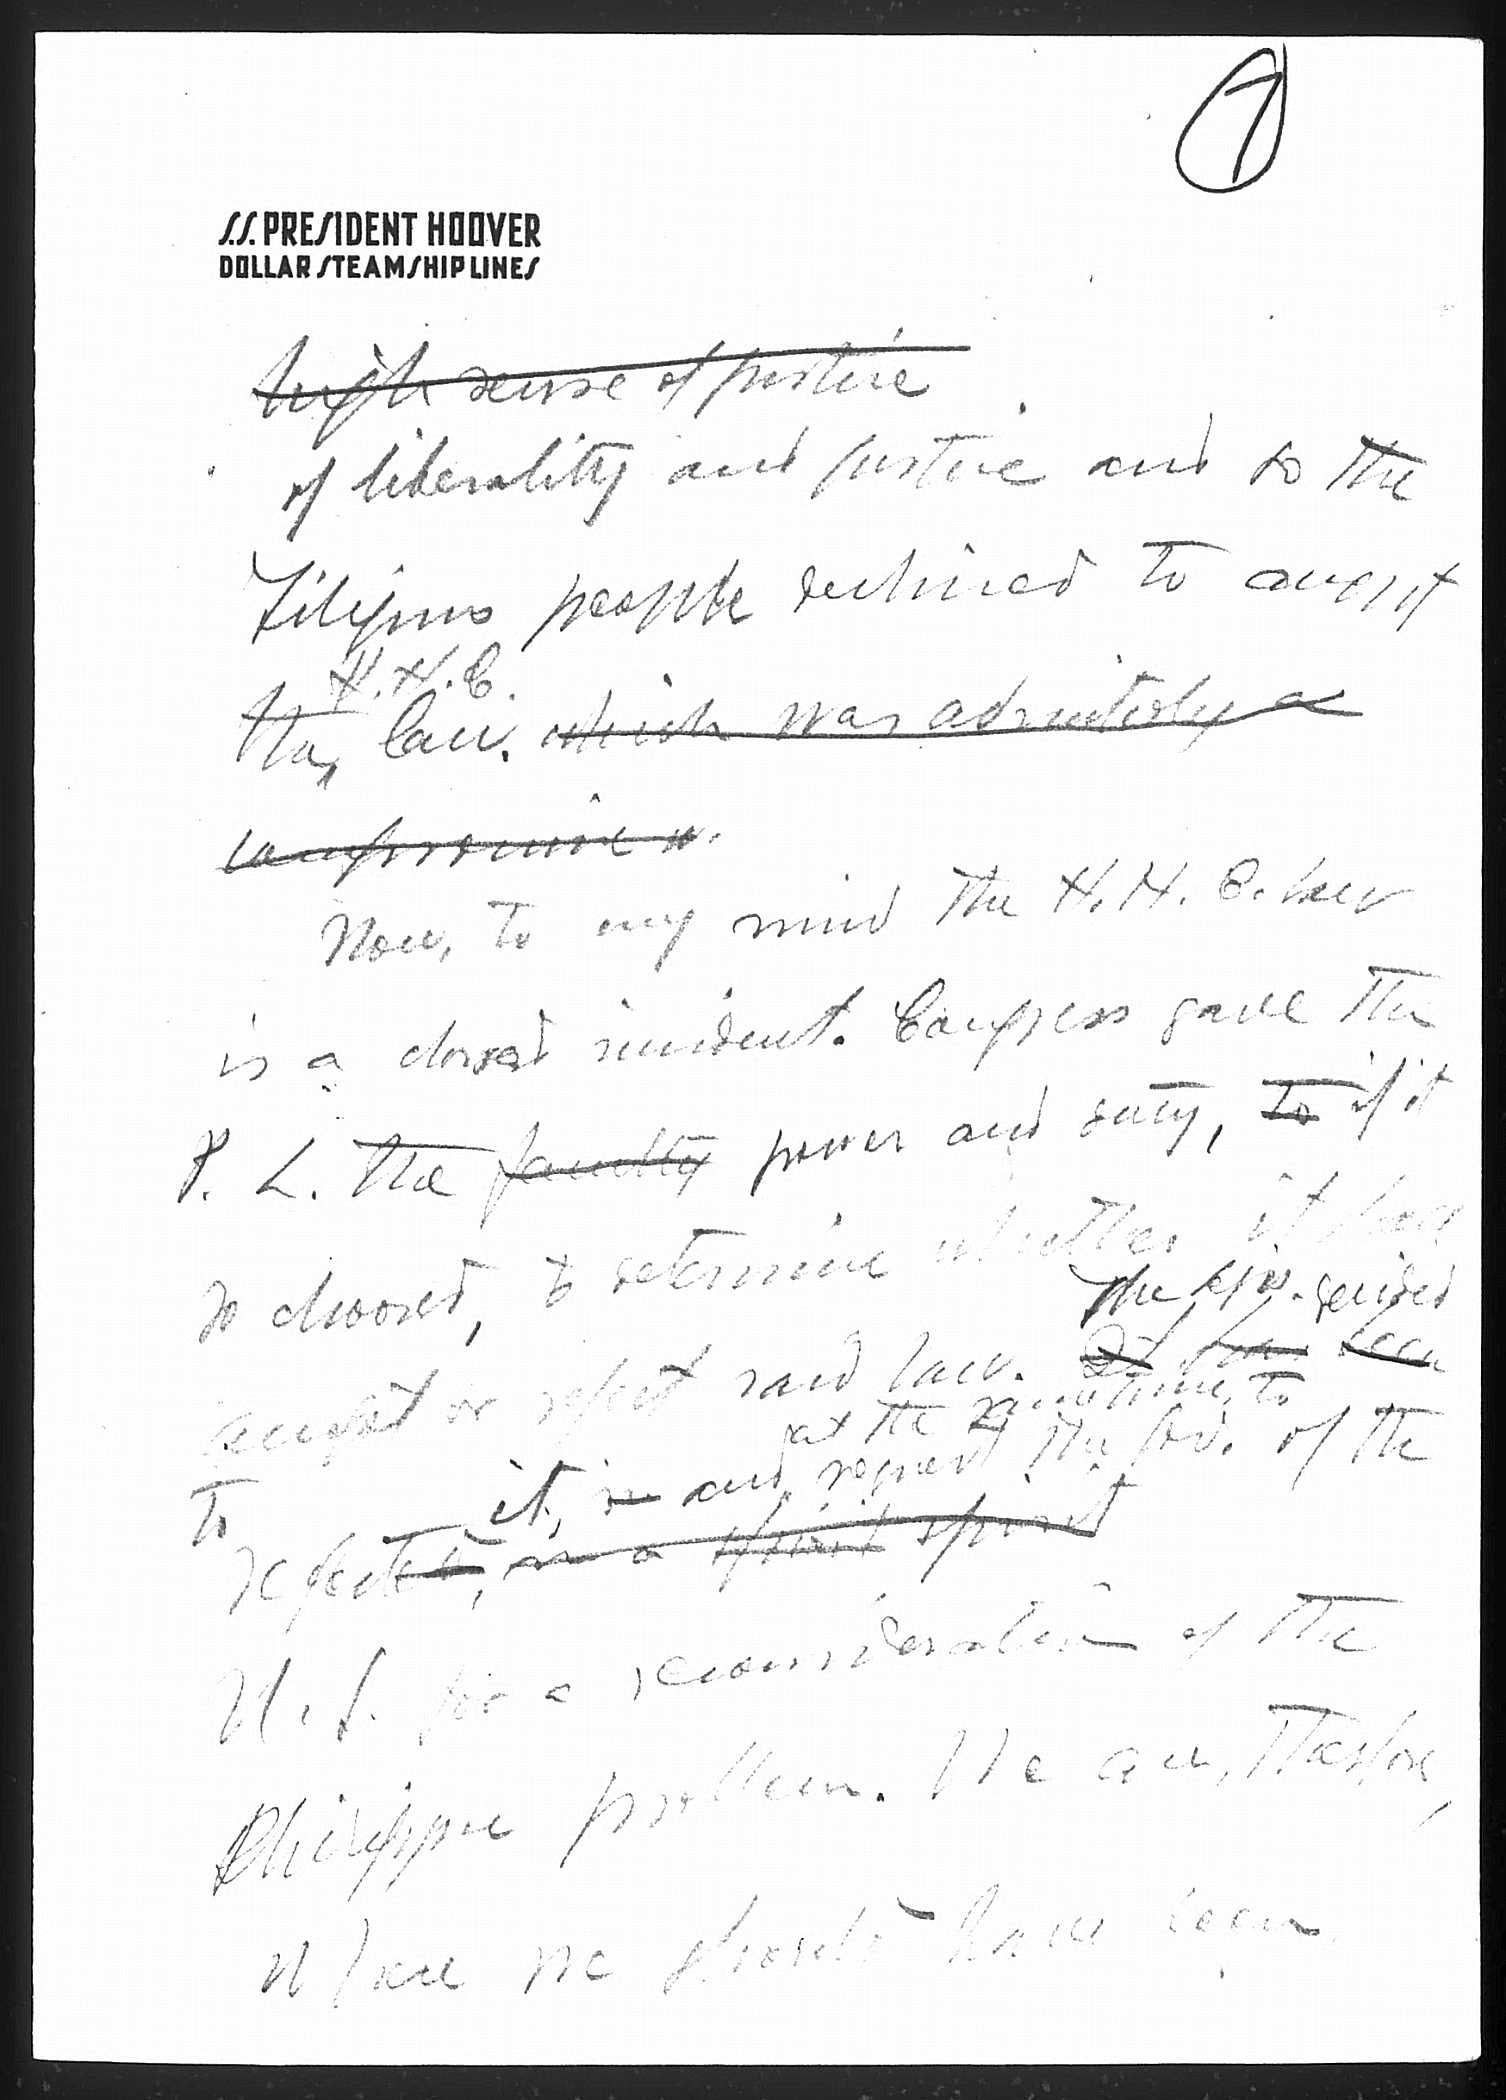 7
S.S. PRESIDENT HOOVER
DOLLAR STEAMSHIP LINES
high sense of justice
of liberality and justice and so the
Filipino people declined to accept
H. H. C.
the law. which was admittedly a
compromise
Now, to my mind the H. H. C. law
is a closed incident. Congress gave the
P. L. the faculty power and duty, to if it
so choosed, to determine whether it
accept or reject said law. It has been
The Leg. decided
at the same time, to
to
it, in and request the Gov. of the
rejected, in a spirit spirit
U. S. for a reconsideration of the
Philippine problem. We are, therefore,
where we should have been